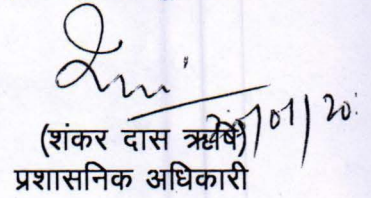 (शंकर दास ऋषि)
/01/20
प्रशासनिक अधिकारी